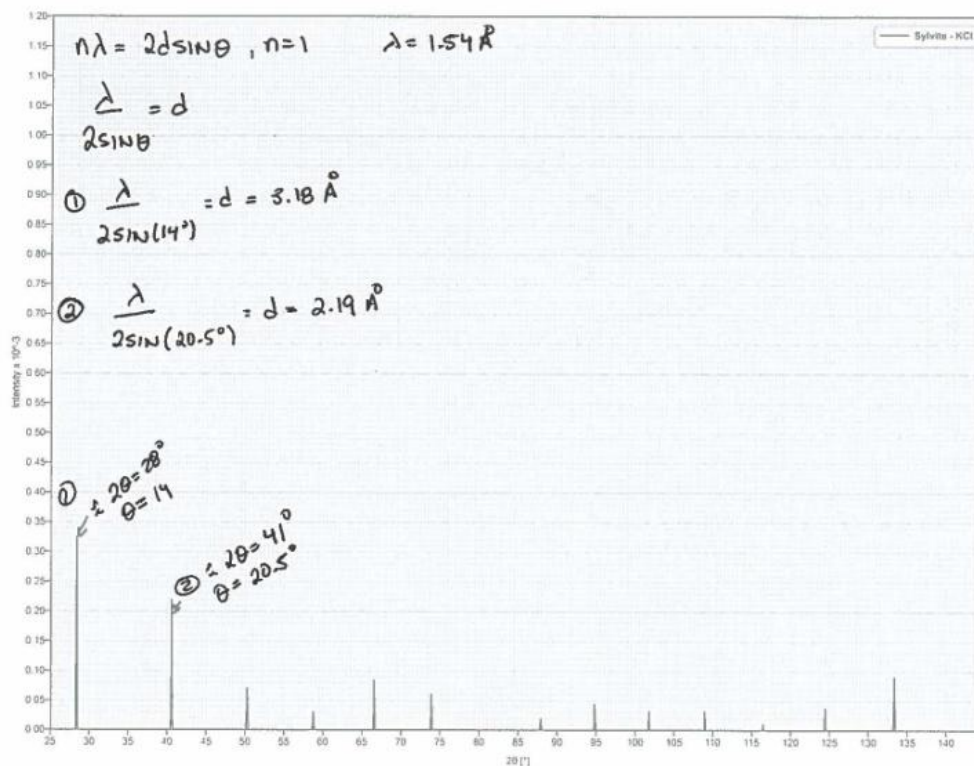 Sylvite - KCl
nλ = 2dSINθ , n=1 λ = 1.54 Å
λ
2SINθ = d
① λ
2SIN(14°) = d = 3.18 Å
② λ
2SIN(20.5°) = d = 2.19 Å
① ≈ 2θ=28°
θ=14
② ≈ 2θ=41°
θ= 20.5°
Intensity x 10^-3
1.20
1.15
1.10
1.05
1.00
0.95
0.90
0.85
0.80
0.75
0.70
0.65
0.60
0.55
0.50
0.45
0.40
0.35
0.30
0.25
0.20
0.15
0.10
0.05
0.00
25 30 35 40 45 50 55 60 65 70 75 80 85 90 95 100 105 110 115 120 125 130 135 140
2θ [°]